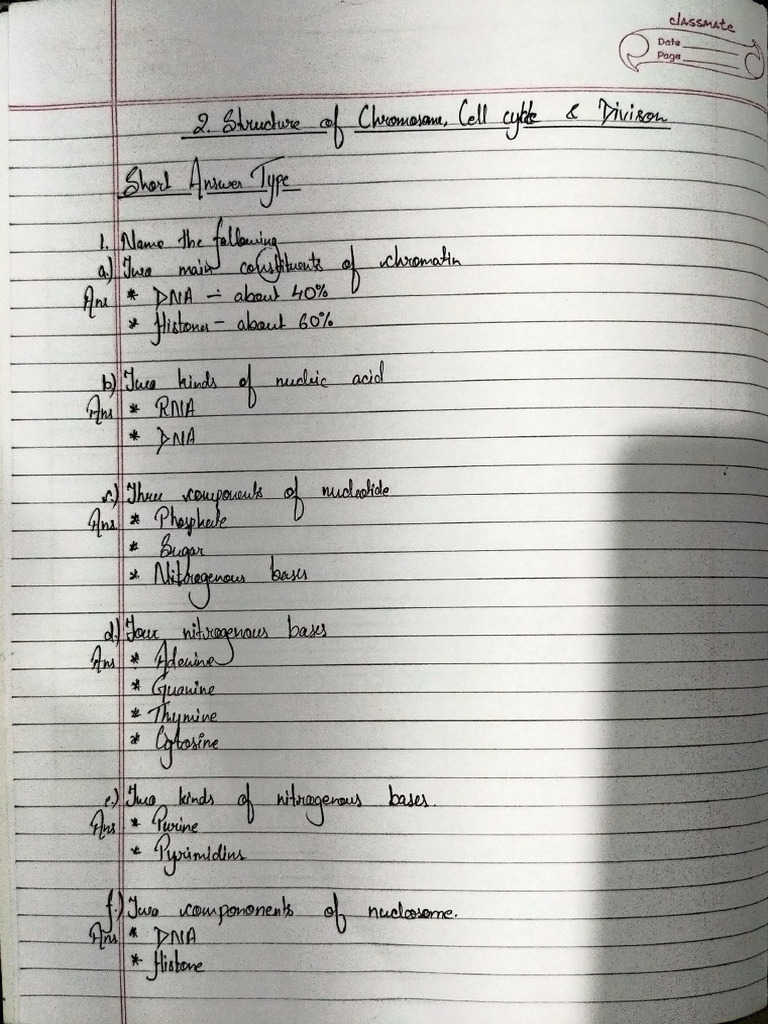 classmate
Date
Page
2. Structure of Chromosome, Cell cycle & Divison
Short Answer Type
1. Name the following
a.) Two main constituents of chromatin
Ans * DNA - about 40%
* Histones - about 60%
b) Two kinds of nucleic acid
Ans * RNA
* DNA
c.) Three components of nucleotide
Ans * Phosphate
* Sugar
* Nitrogenous bases
d.) Four nitrogenous bases
Ans * Adenine
* Guanine
* Thymine
* Cytosine
e.) Two kinds of nitrogenous bases.
Ans * Purine
* Pyrimidins
f.) Two compononents of nucleosome.
Ans * DNA
* Histone